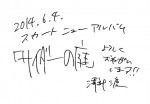 2014.6.4.
スカート ニューアルバム
「サイダーの庭」
よろしく
おねがい
します!!
澤部 渡